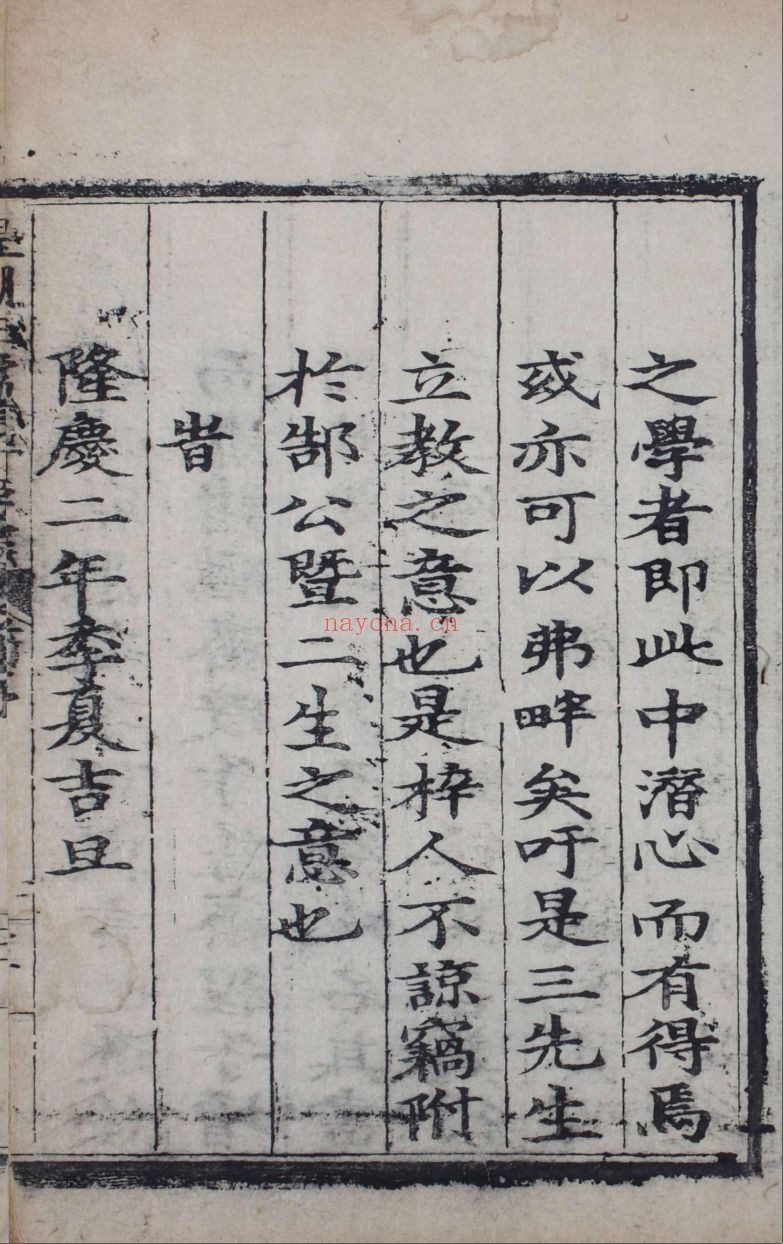 之學者即此中潛心而有得焉
或亦可以弗畔矣吁是三先生
立教之意也是梓人不諒竊附
於郜公暨二生之意也
旹
隆慶二年季夏吉旦
nayona.cn